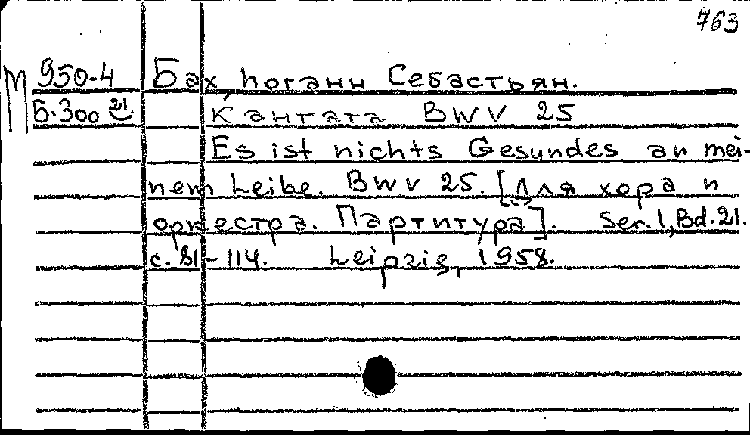 763
М 950-4 Бах, Иоганн Себастьян.
Б.300 21 Кантата BWV 25
Es ist nichts Gesundes an mei-
nem Leibe. BWV 25. [Для хора и
оркестра. Партитура]. Ser. 1, Bd. 21.
с. 81-114. Leipzig, 1958.